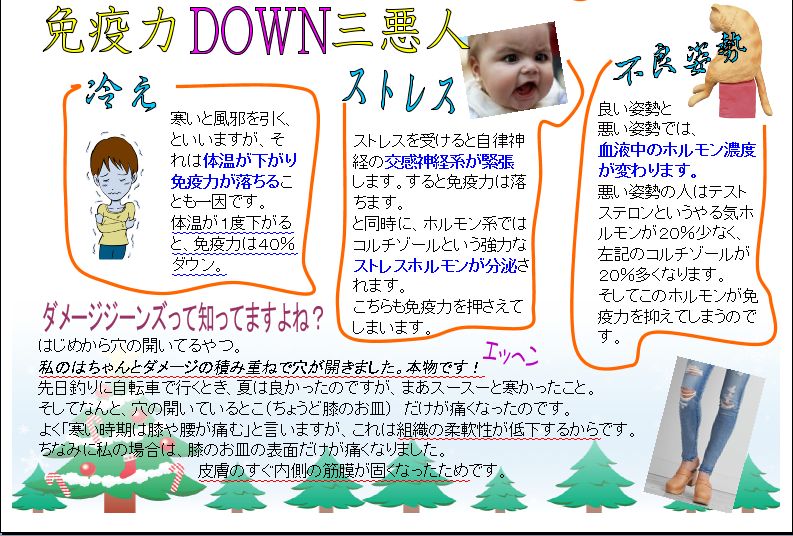 免疫力DOWN三悪人
冷え
寒いと風邪を引く、
といいますが、そ
れは体温が下がり
免疫力が落ちるこ
とも一因です。
体温が1度下がる
と、免疫力は40%
ダウン。
ストレス
ストレスを受けると自律神
経の交感神経系が緊張
します。すると免疫力は落
ちます。
と同時に、ホルモン系では
コルチゾールという強力な
ストレスホルモンが分泌さ
れます。
こちらも免疫力を押さえて
しまいます。
不良姿勢
良い姿勢と
悪い姿勢では、
血液中のホルモン濃度
が変わります。
悪い姿勢の人はテスト
ステロンというやる気ホ
ルモンが20%少なく、
左記のコルチゾールが
20%多くなります。
そしてこのホルモンが免
疫力を抑えてしまうので
す。
ダメージジーンズって知ってますよね？
はじめから穴の開いてるやつ。
私のはちゃんとダメージの積み重ねで穴が開きました。本物です！
エッヘン
先日釣りに自転車で行くとき、夏は良かったのですが、まあスースーと寒かったこと。
そしてなんと、穴の開いているとこ（ちょうど膝のお皿） だけが痛くなったのです。
よく「寒い時期は膝や腰が痛む」と言いますが、これは組織の柔軟性が低下するからです。
ちなみに私の場合は、膝のお皿の表面だけが痛くなりました。
皮膚のすぐ内側の筋膜が固くなったためです。